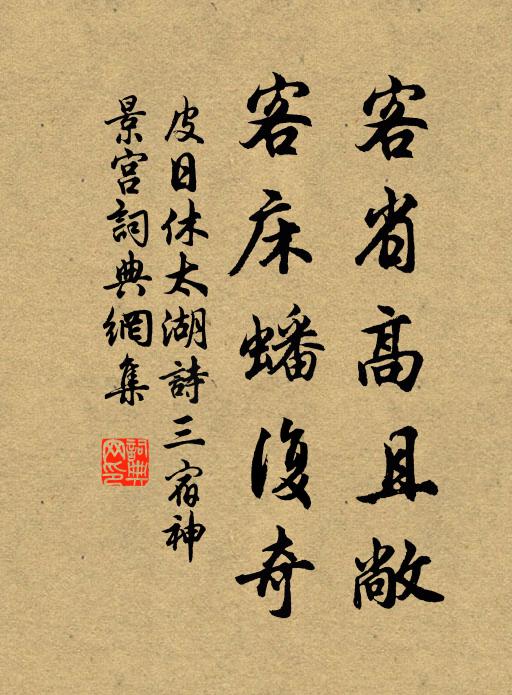 客省高且敞
客床蟠復奇
皮日休太湖詩三宿神
景宮詞典網集
詞典網印